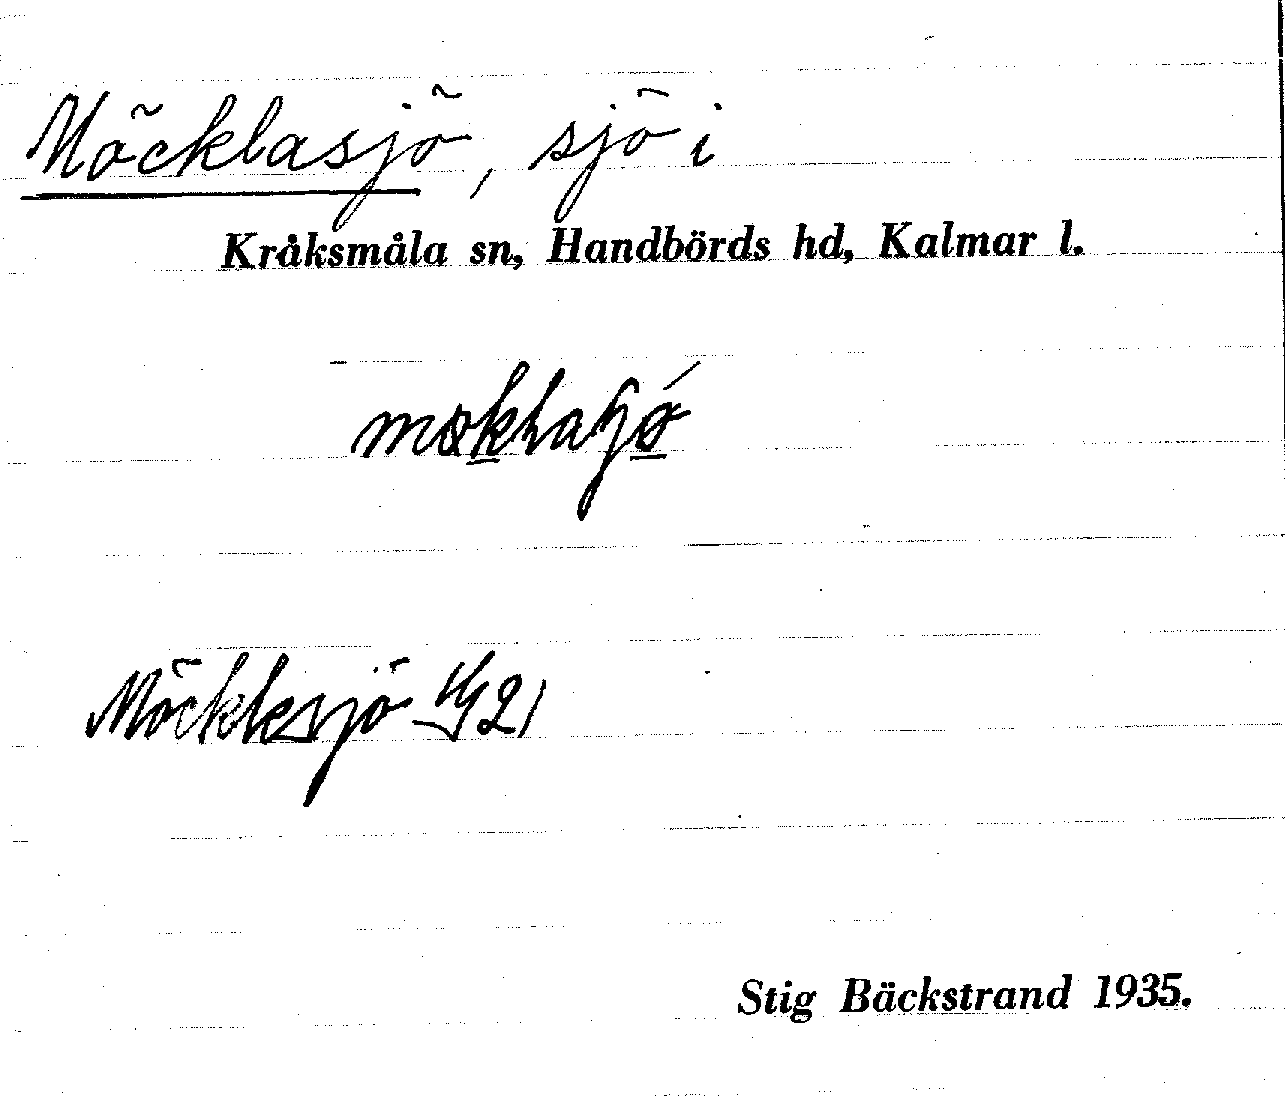 Möcklasjö, sjö i
Kråksmåla sn, Handbörds hd, Kalmar l.
Möcklesjö
Stig Bäckstrand 1935.